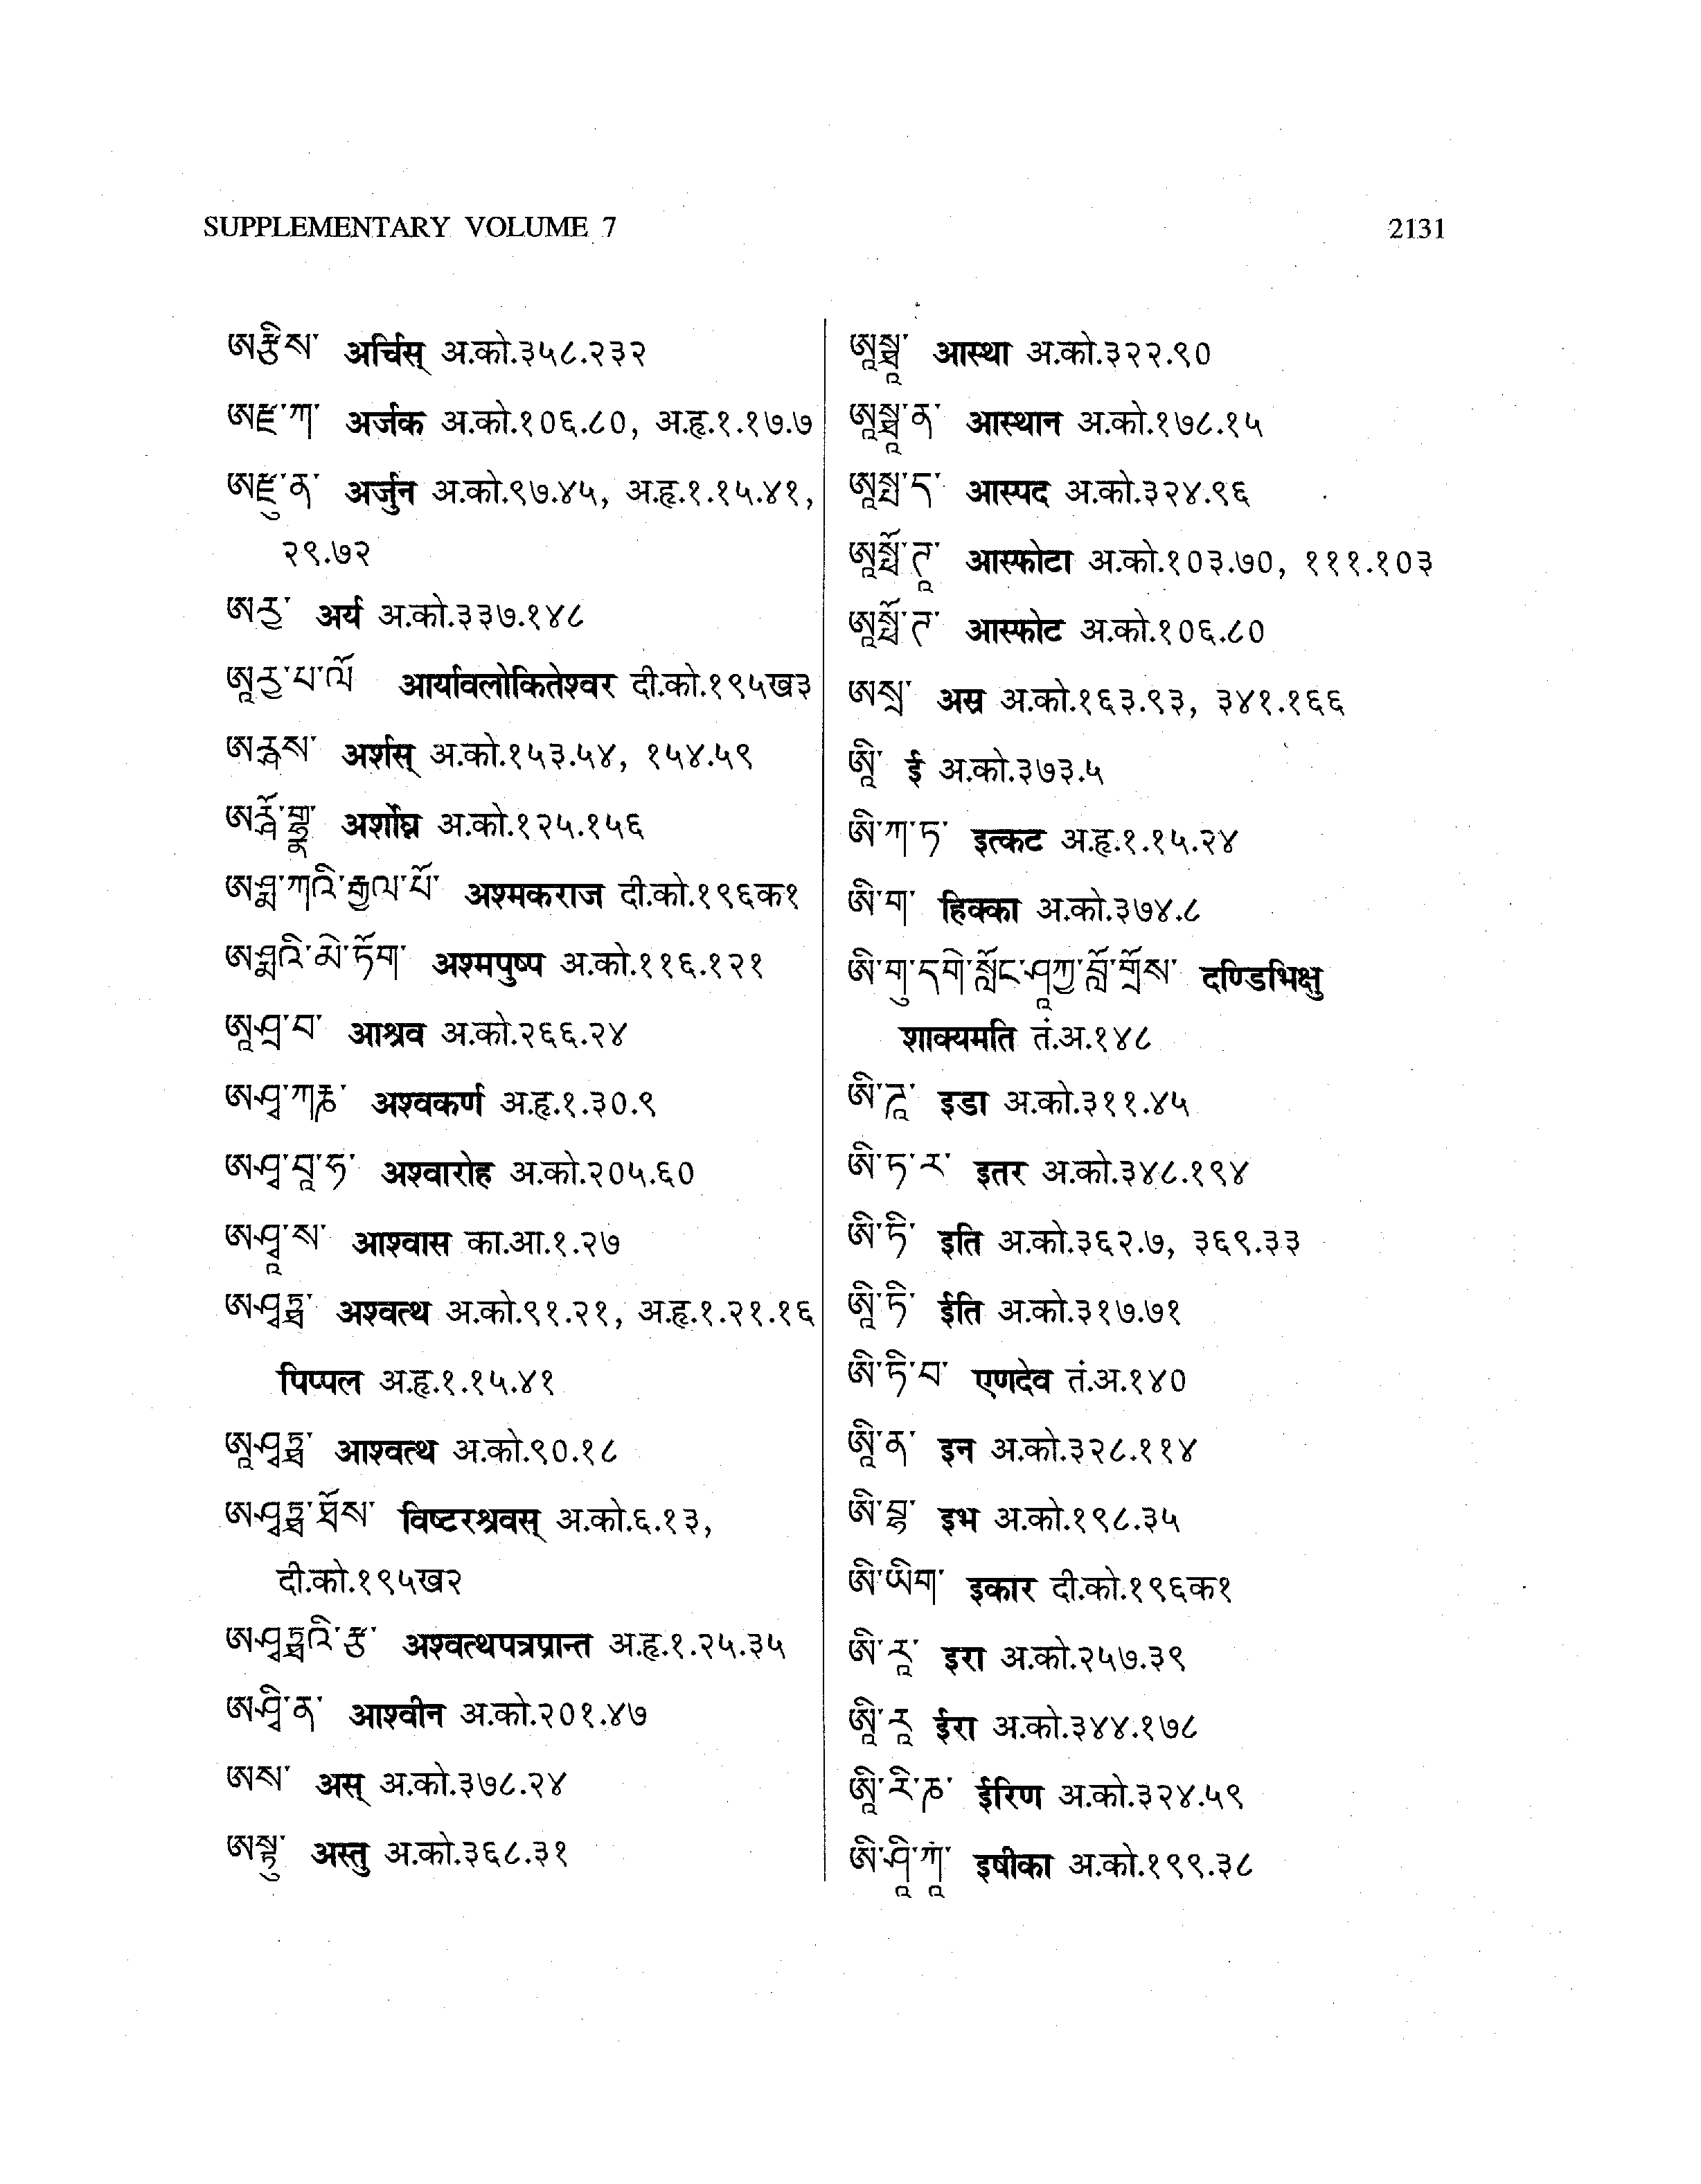 SUPPLEMENTARY VOLUME 7 2131
ཨརྩིས་ अर्चिस् अ.को.३५८.२३२
ཨརྫ་ཀ अर्जक अ.को.१०६.८०, अ.हृ.१.१७.७
ཨརྫུ་ན་ अर्जुन अ.को.९७.४५, अ.हृ.१.१५.४१,
२९.७२
ཨརྱ་ अर्य अ.को.३३७.१४८
ཨཱརྱ་པ་ལོ आर्यावलोकितेश्वर दी.को.१९५ख३
ཨརྴས་ अर्शस् अ.को.१५३.५४, १५४.५९
ཨརྴོ་གྷྣ་ अर्शोघ्न अ.को.१२५.१५६
ཨཤྨ་ཀའི་རྒྱལ་པོ་ अश्मकराज दी.को.१९६क१
ཨཤྨའི་མེ་ཏོག་ अश्मपुष्प अ.को.११६.१२१
ཨཱ་ཤྲ་བ་ आश्रव अ.को.२६६.२४
ཨ་ཤྭ་ཀརྞ་ अश्वकर्ण अ.हृ.१.३०.९
ཨ་ཤྭ་བཱ་ཧ་ अश्वारोह अ.को.२०५.६०
ཨ་ཤྭཱ་ས་ आश्वास का.आ.१.२७
ཨ་ཤྭཏྠ་ अश्वत्थ अ.को.९१.२१, अ.हृ.१.२१.१६
पिप्पल अ.हृ.१.१५.४१
ཨཱ་ཤྭཏྠ་ आश्वत्थ अ.को.९०.१८
ཨ་ཤྭཏྠ་ཐོས་ विष्टरश्रवस् अ.को.६.१३,
दी.को.१९५ख२
ཨ་ཤྭཏྠའི་རྩ་ अश्वत्थपत्रप्रान्त अ.हृ.१.२५.३५
ཨ་ཤྭི་ན་ आश्वीन अ.को.२०१.४७
ཨས་ अस् अ.को.३७८.२४
ཨསྟུ་ अस्तु अ.को.३६८.३१
ཨཱསྠཱ་ आस्था अ.को.३२२.९०
ཨཱསྠཱ་ན་ आस्थान अ.को.१७८.१५
ཨཱསྤ་ད་ आस्पद अ.को.३२४.९६
ཨཱསྥོ་ཊཱ་ आस्फोटा अ.को.१०३.७०, १११.१०३
ཨཱསྥོ་ཊ་ आस्फोट अ.को.१०६.८०
ཨསྲ་ अस्र अ.को.१६३.९३, ३४१.१६६
ཨཱི་ ई अ.को.३७३.५
ཨི་ཀ་ཏ་ इत्कट अ.हृ.१.१५.२४
ཨི་ག་ हिक्का अ.को.३७४.८
ཨི་གུ་དགེ་སློང་ཤཱཀྱ་བློ་གྲོས་ दण्डिभिक्षु
शाक्यमति तं.अ.१४८
ཨི་ཌཱ་ इडा अ.को.३११.४५
ཨི་ཏ་ར་ इतर अ.को.३४८.१९४
ཨི་ཏི་ इति अ.को.३६२.७, ३६९.३३
ཨཱི་ཏི་ ईति अ.को.३१७.७१
ཨི་ཏི་བ་ एणदेव तं.अ.१४०
ཨཱི་ན་ इन अ.को.३२८.११४
ཨི་བྷ་ इभ अ.को.१९८.३५
ཨི་ཡིག་ इकार दी.को.१९६क१
ཨི་རཱ་ इरा अ.को.२५७.३९
ཨཱི་རཱ་ ईरा अ.को.३४४.१७८
ཨཱི་རི་ཎ་ ईरिण अ.को.३२४.५९
ཨི་ཤཱི་ཀཱཾ་ इषीका अ.को.१९९.३८